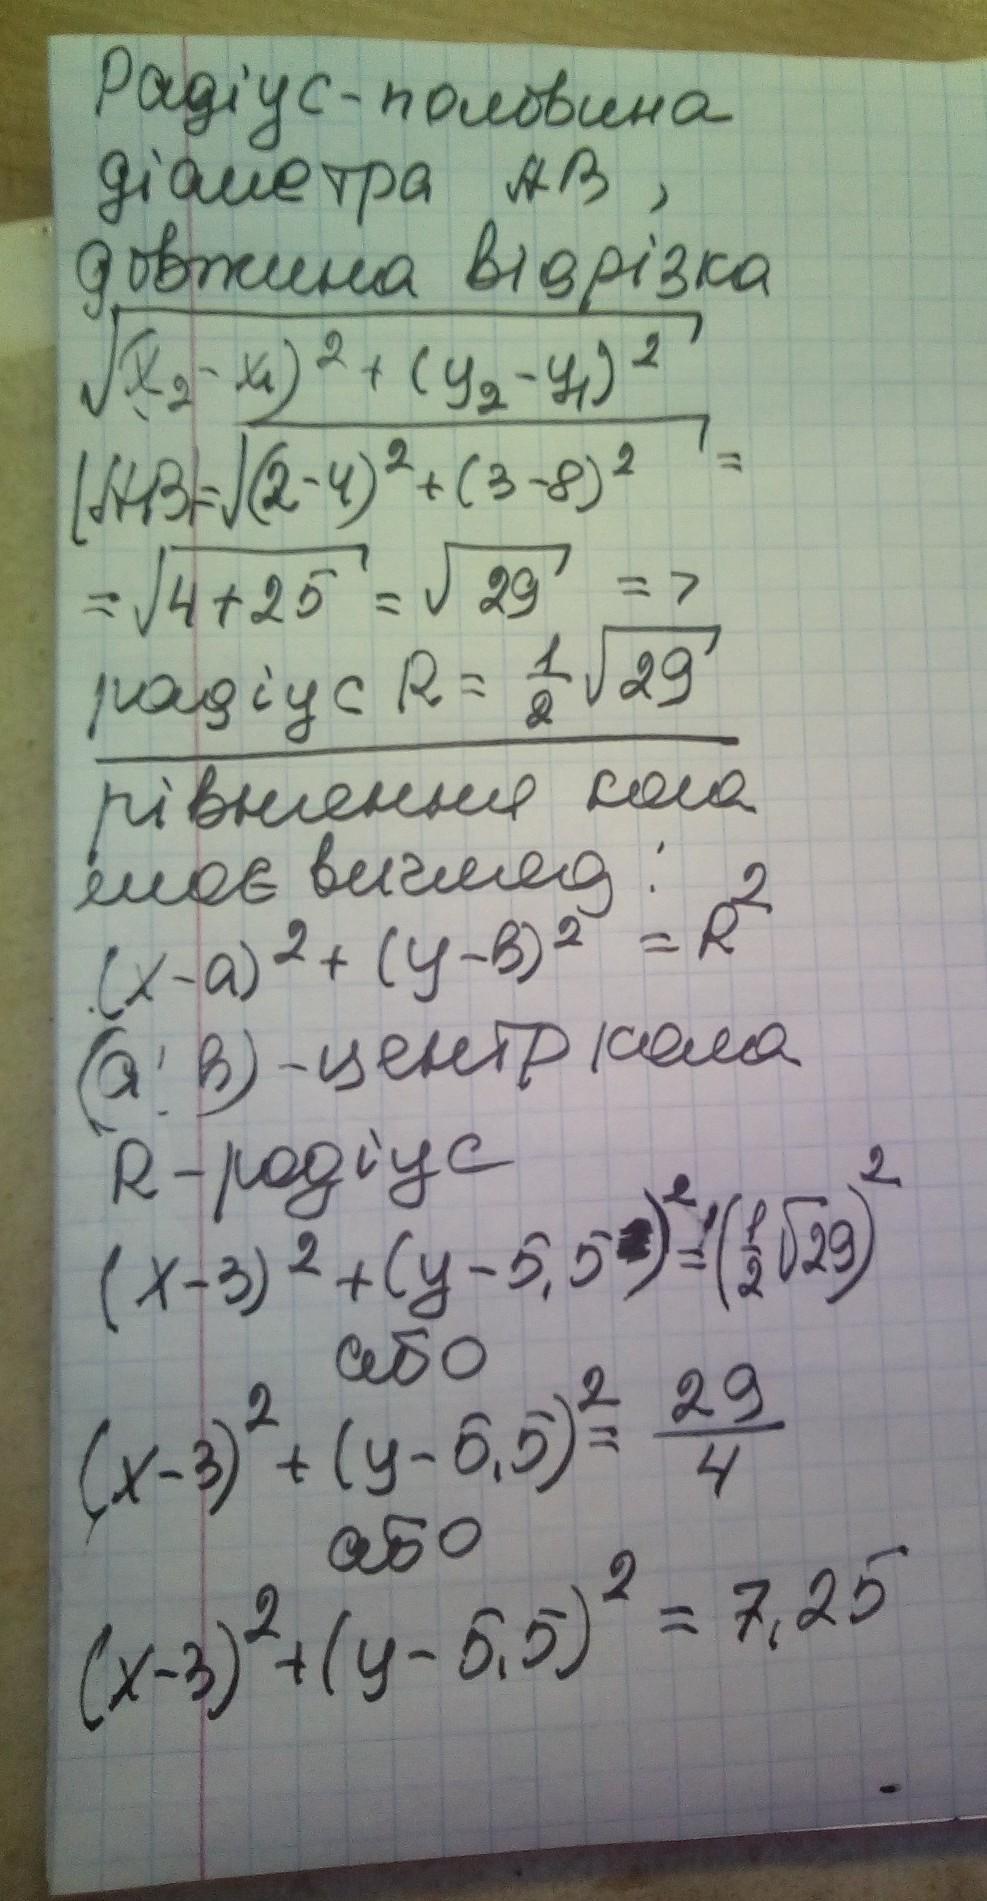 Радіус-половина
діаметра AB,
довжина відрізка
√(x₂-x₁)² + (y₂-y₁)²
|AB|=√(2-4)²+(3-8)² =
=√4+25 = √29 =>
радіус R = 1/2 √29
рівняння кола
має вигляд:
(x-a)²+(y-b)² = R²
(a; b) - центр кола
R-радіус
(x-3)²+(y-5,5)²=(1/2 √29)²
або
(x-3)²+(y-5,5)²= 29/4
або
(x-3)²+(y-5,5)² = 7,25